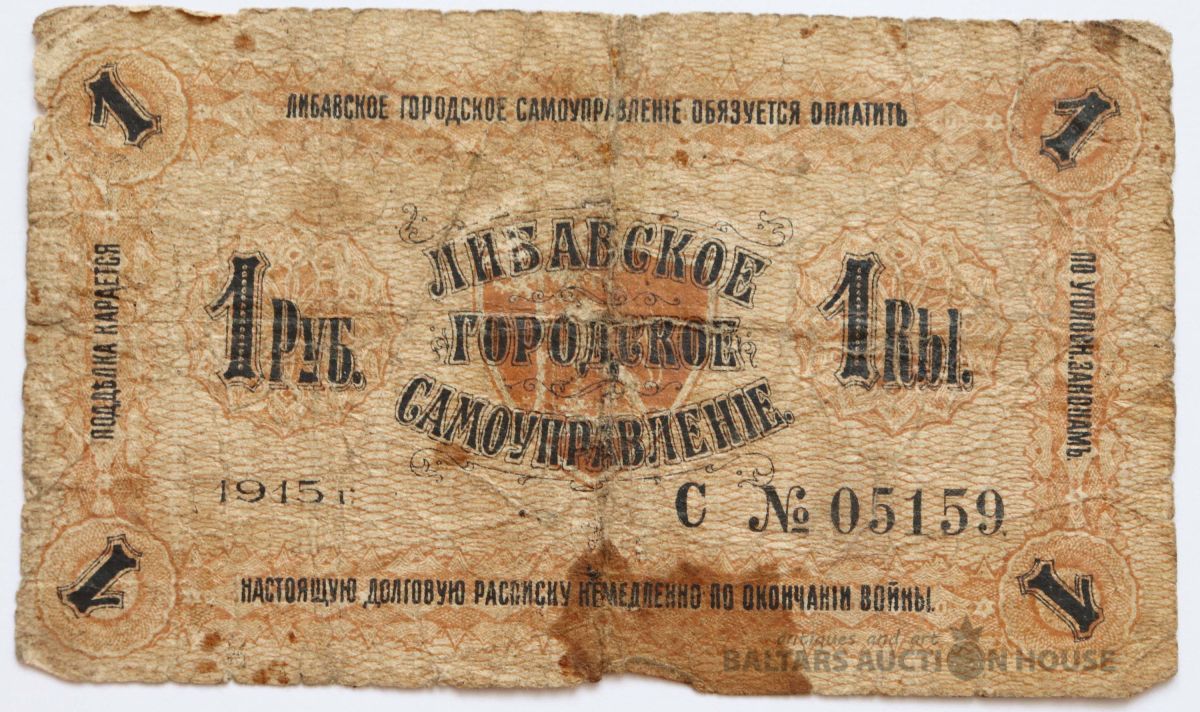 1
1
ЛИБАВСКОЕ ГОРОДСКОЕ САМОУПРАВЛЕНІЕ ОБЯЗУЕТСЯ ОПЛАТИТЬ
ПОДДѢЛКА КАРАЕТСЯ
ПО УГОЛОВН. ЗАКОНАМЪ.
ЛИБАВСКОЕ
ГОРОДСКОЕ
САМОУПРАВЛЕНІЕ.
1 РУБ.
1 Rbl.
1915 г.
С № 05159
1
1
НАСТОЯЩУЮ ДОЛГОВУЮ РАСПИСКУ НЕМЕДЛЕННО ПО ОКОНЧАНІИ ВОЙНЫ.
antiques and art
BALTARS AUCTION HOUSE